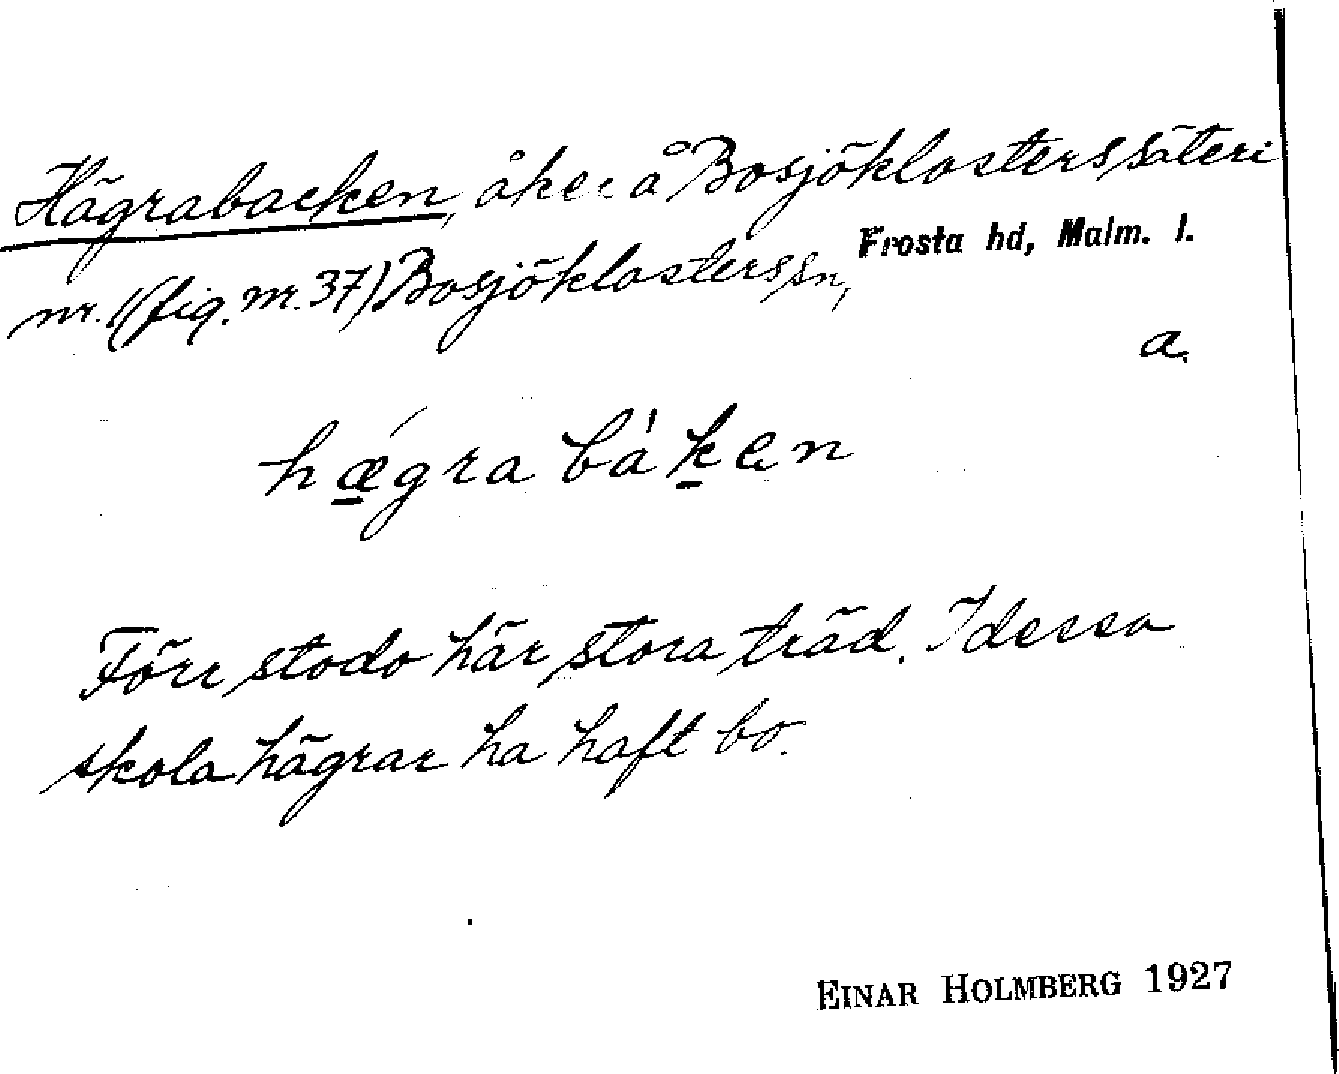 Hägrabacken, åker å Bosjöklosters säteri
nr. 1 (fig. nr. 37) Bosjöklosters sn, Frosta hd, Malm. l.
a.
hǽgra bàken
Förr stodo här stora träd. I dessa
skola hägrar ha haft bo.
EINAR HOLMBERG 1927